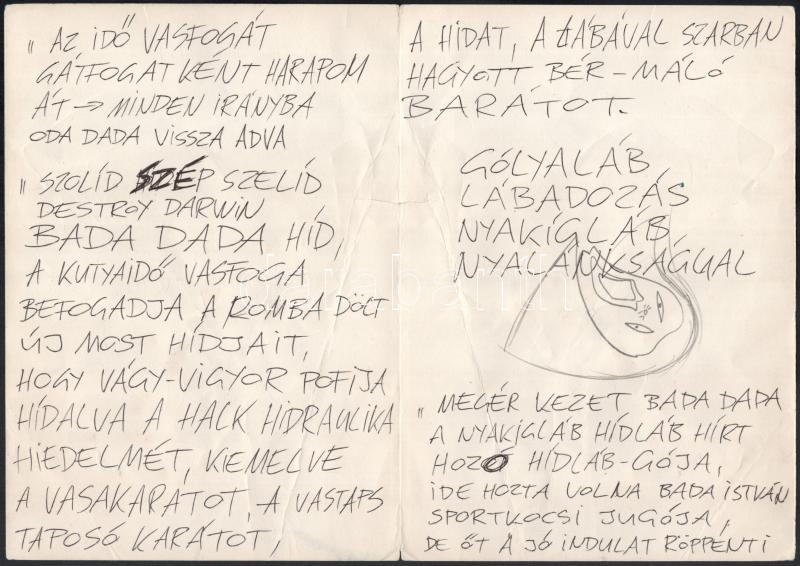 „ AZ IDŐ VASFOGÁT
GÁTFOGATKÉNT HARAPOM
ÁT → MINDEN IRÁNYBA
ODA DADA VISSZA ADVA
„ SZOLÍD SZÉP SZELÍD
DESTROY DARWIN
BADA DADA HÍD,
A KUTYAIDŐ VASFOGA
BEFOGADJA A ROMBA DŐLT
ÚJ MOST HÍDJAIT,
HOGY VÁGY-VIGYOR POFIJA
HÍDALVA A HACK HIDRAULIKA
HIEDELMÉT, KIEMELVE
A VASAKARATOT, A VASTAPS
TAPOSÓ KARÁTOT,
A HIDAT, A LÁBÁVAL SZARBAN
HAGYOTT BÉR-MÁLÓ
BARÁTOT.
GÓLYALÁB
LÁBADOZÁS
NYAKIGLÁB
NYAVANKSÁGUAL
„ MEGÉR KEZET BADA DADA
A NYAKIGLÁB HÍDLÁB HÍRT
HOZÓ HÍDLÁB-GÓJA,
IDE HOZTA VOLNA BADA ISTVÁN
SPORTKOCSI JUGÓJA,
DE ŐT A JÓ INDULAT RÖPPENTI